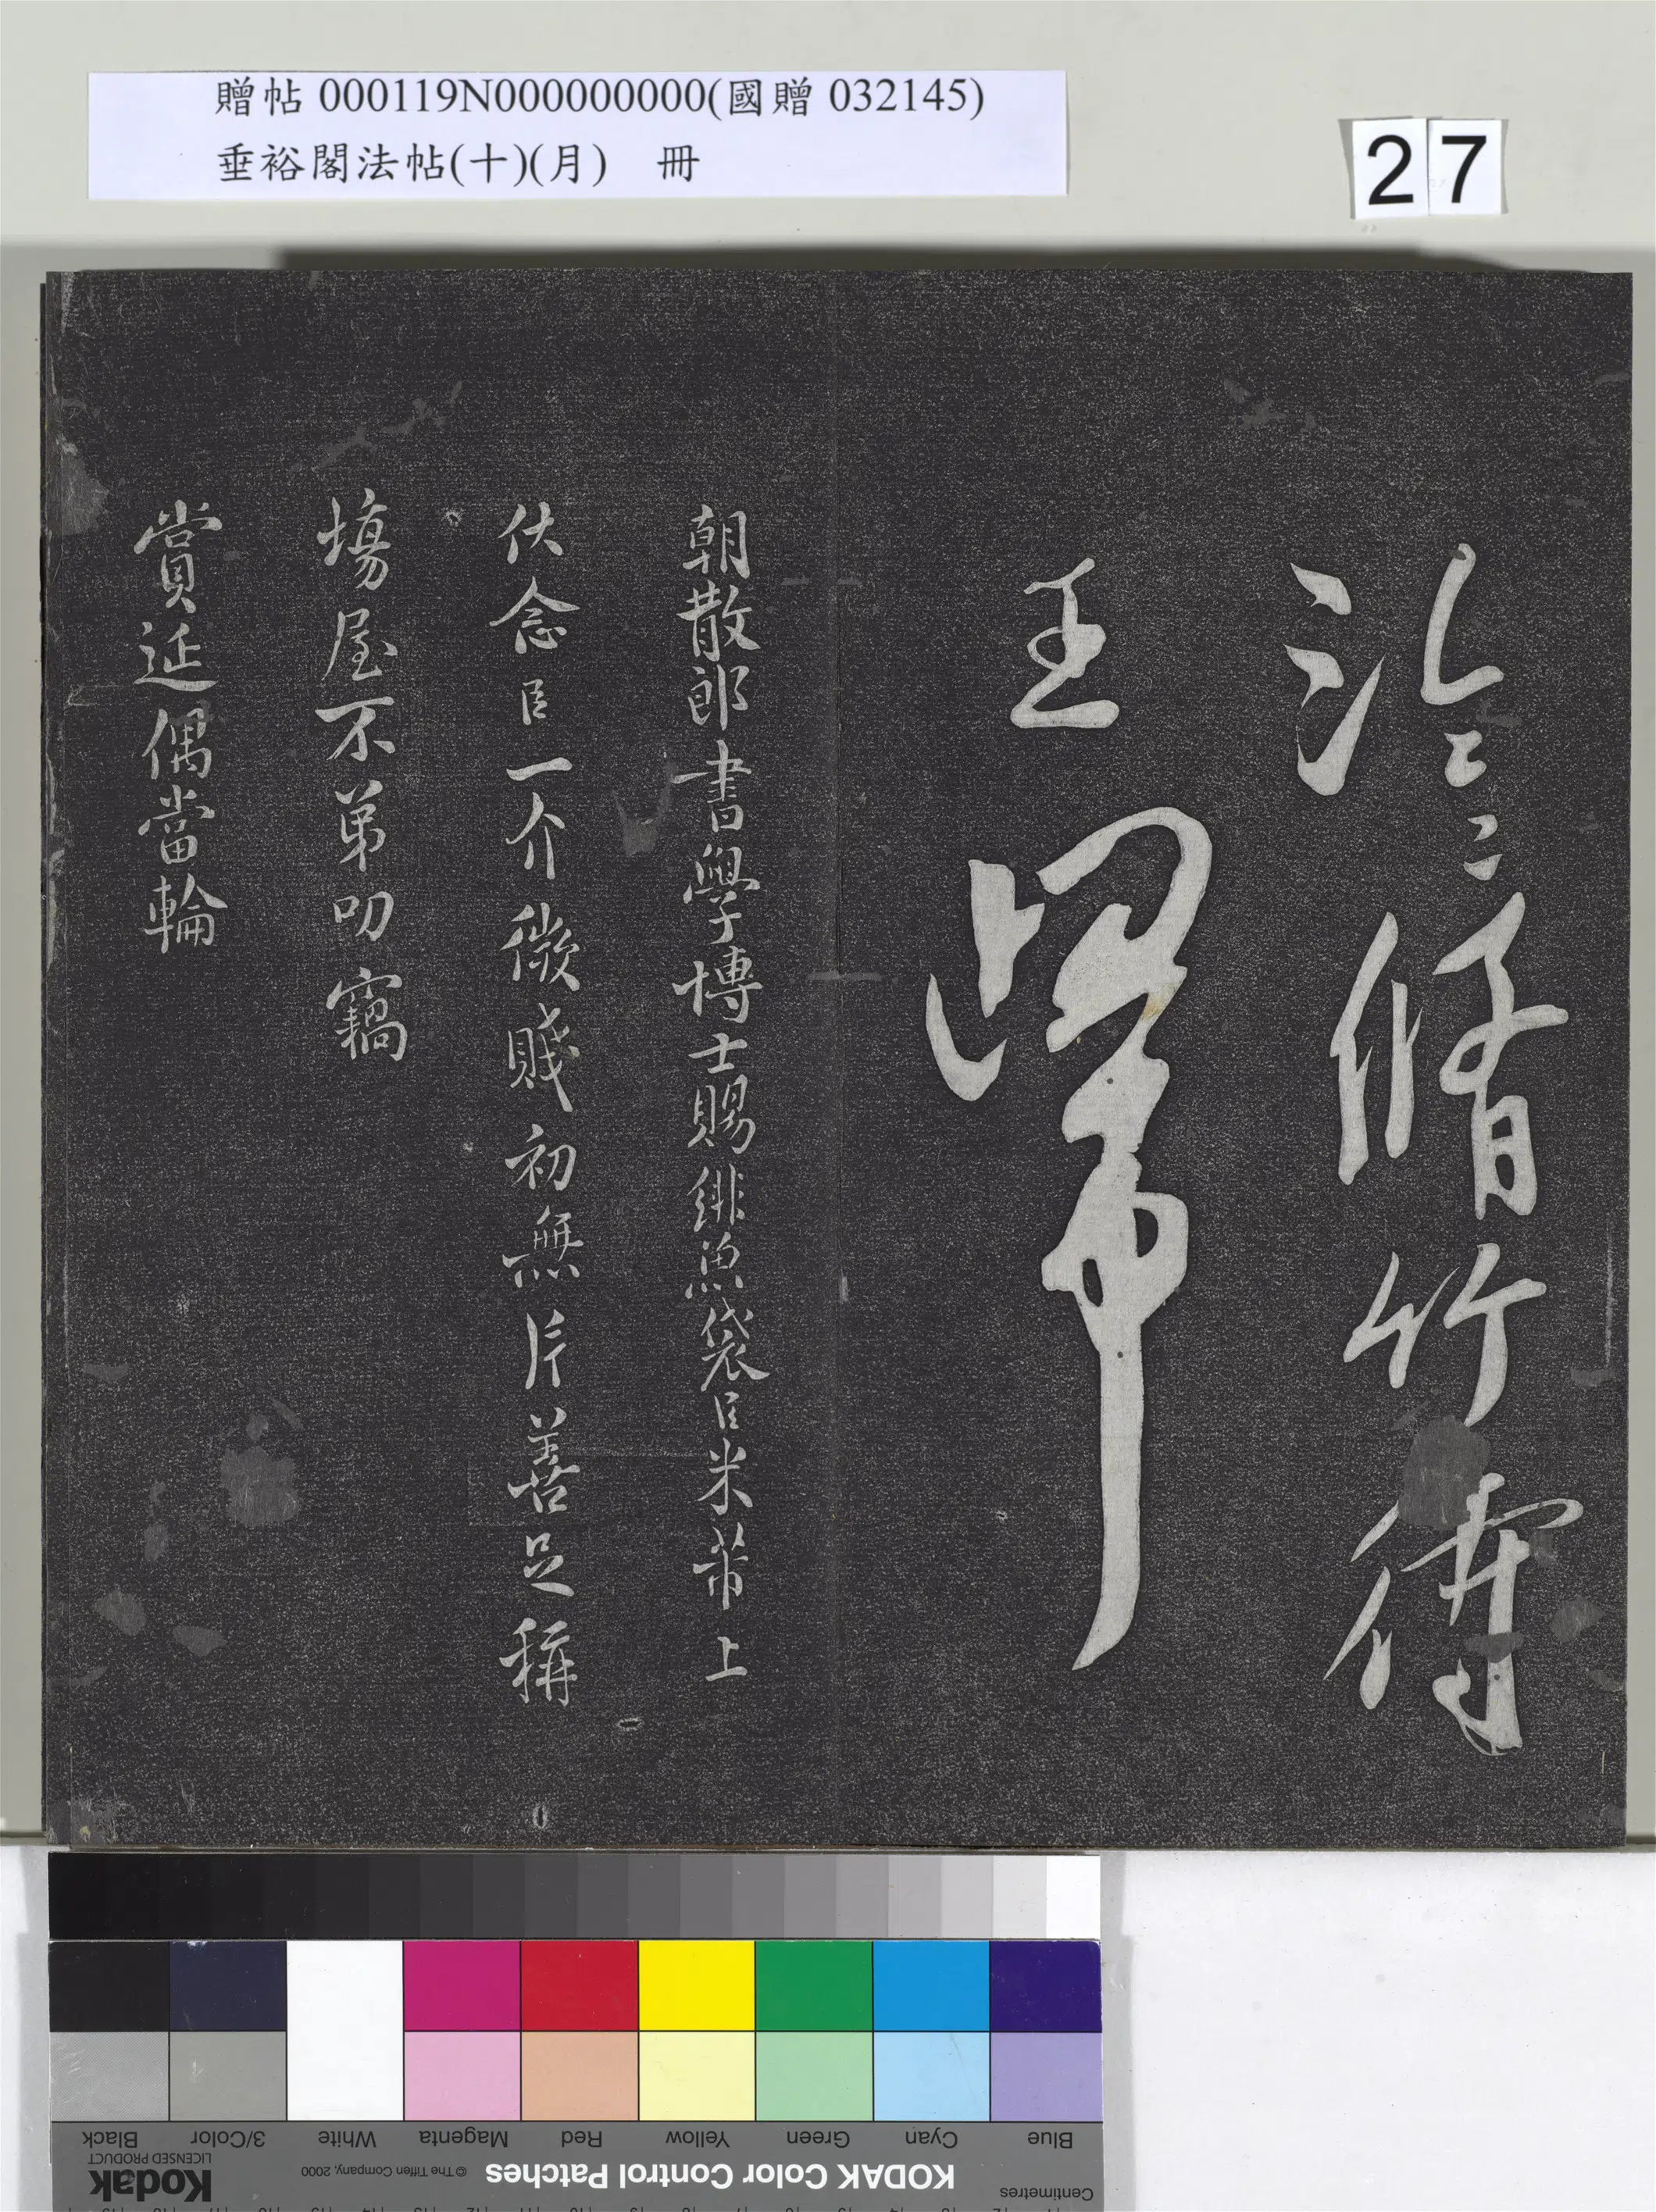 贈帖 000119N000000000(國贈 032145)
垂裕閣法帖(十)(月) 冊
27
泠〻脩竹待
王歸
朝散郎書學博士賜緋魚袋臣米芾上
伏念臣一介微賤初無片善足稱
塲屋不第叨竊
賞延偶當輪
Centimetres
KODAK Color Control Patches © The Tiffen Company, 2000 Kodak
LICENSED PRODUCT
Blue Cyan Green Yellow Red Magenta White 3/Color Black